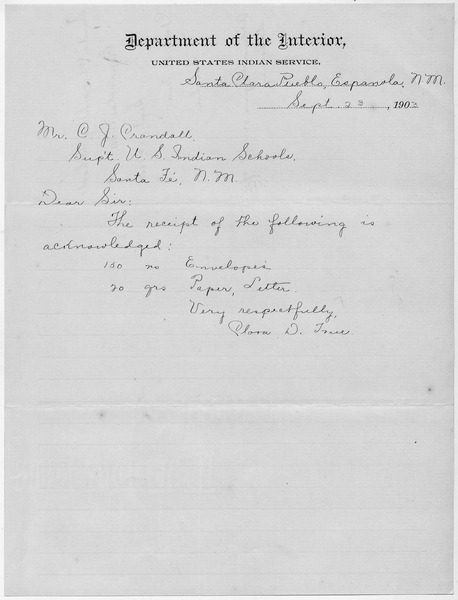 Department of the Interior,
UNITED STATES INDIAN SERVICE,
Santa Clara Pueblo, Espanola, N.M.
Sept. 23, 1903
Mr. C. J. Crandall,
Sup't. U. S. Indian Schools,
Santa Fé, N. M.
Dear Sir:
The receipt of the following is
acknowledged:
150 no Envelopes
20 qrs Paper, Letter.
Very respectfully,
Clara D. True.